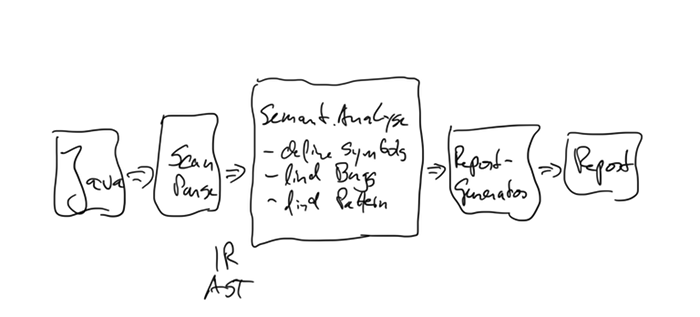 Java
Scan
Parse
Semant. Analyse
- define Symbols
- find Bugs
- find Pattern
Report-
Generator
Report
IR
AST